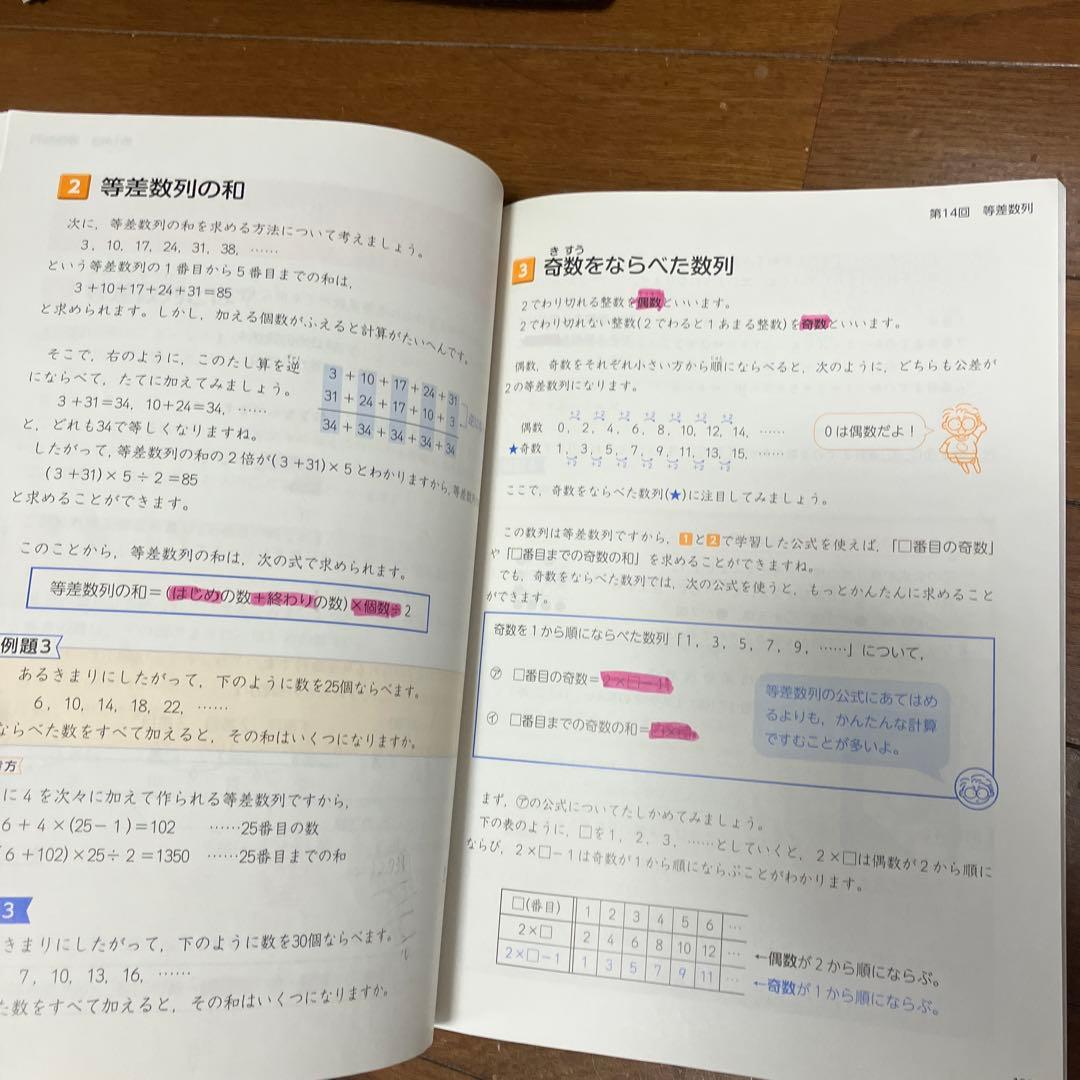 2 等差数列の和
次に，等差数列の和を求める方法について考えましょう。
3，10，17，24，31，38，……
という等差数列の1番目から5番目までの和は，
3＋10＋17＋24＋31＝85
と求められます。しかし，加える個数がふえると計算がたいへんです。
そこで，右のように，このたし算を逆
にならべて，たてに加えてみましょう。
3＋31＝34，10＋24＝34，……
と，どれも34で等しくなりますね。
3 ＋ 10 ＋ 17 ＋ 24 ＋ 31
31 ＋ 24 ＋ 17 ＋ 10 ＋ 3
34 ＋ 34 ＋ 34 ＋ 34 ＋ 34
したがって，等差数列の和の2倍が(3＋31)×5とわかりますから，等差数列
(3＋31)×5÷2＝85
と求めることができます。
このことから，等差数列の和は，次の式で求められます。
等差数列の和＝(はじめの数＋終わりの数)×個数÷2
例題3
あるきまりにしたがって，下のように数を25個ならべます。
6，10，14，18，22，……
ならべた数をすべて加えると，その和はいくつになりますか。
方
に4を次々に加えて作られる等差数列ですから，
6＋4×(25－1)＝102 ……25番目の数
(6＋102)×25÷2＝1350 ……25番目までの和
3
きまりにしたがって，下のように数を30個ならべます。
7，10，13，16，……
た数をすべて加えると，その和はいくつになりますか。
第14回 等差数列
きすう
3 奇数をならべた数列
2でわり切れる整数を偶数といいます。
2でわり切れない整数(2でわると1あまる整数)を奇数といいます。
偶数，奇数をそれぞれ小さい方から順にならべると，次のように，どちらも公差が
2の等差数列になります。
+2 +2 +2 +2 +2 +2 +2
偶数 0，2，4，6，8，10，12，14，……
★奇数 1，3，5，7，9，11，13，15，……
+2 +2 +2 +2 +2 +2 +2
0は偶数だよ！
ここで，奇数をならべた数列(★)に注目してみましょう。
この数列は等差数列ですから，1と2で学習した公式を使えば，「□番目の奇数」
や「□番目までの奇数の和」を求めることができますね。
でも，奇数をならべた数列では，次の公式を使うと，もっとかんたんに求めること
ができます。
奇数を1から順にならべた数列「1，3，5，7，9，……」について，
㋐ □番目の奇数＝2×□－1
㋑ □番目までの奇数の和＝
等差数列の公式にあてはめ
るよりも，かんたんな計算
ですむことが多いよ。
まず，㋐の公式についてたしかめてみましょう。
下の表のように，□を1，2，3，……としていくと，2×□は偶数が2から順に
ならび，2×□－1は奇数が1から順にならぶことがわかります。
□(番目) 1 2 3 4 5 6 …
2×□ 2 4 6 8 10 12 … ←偶数が2から順にならぶ。
2×□－1 1 3 5 7 9 11 … ←奇数が1から順にならぶ。